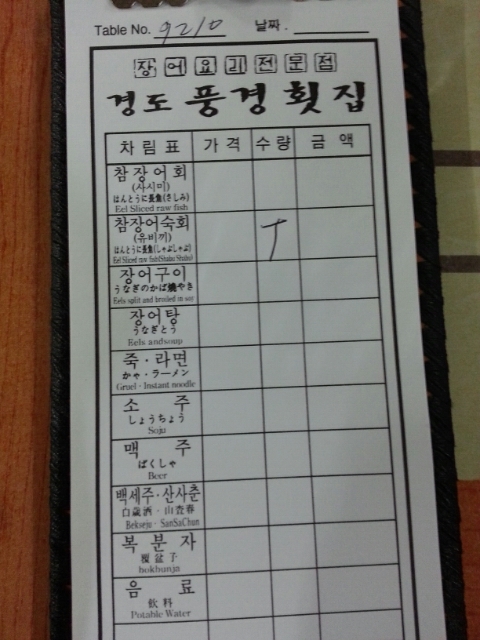 Table No. 9210 날짜 .
장어요리전문점
경도 풍경 횟집
차림표 가격 수량 금액
참장어회
(사시미)
はんとうに長魚(さしみ)
Eel Sliced raw fish
참장어숙회
(유비끼)
はんとうに長魚(しゃぶしゃぶ)
Eel Sliced raw fish(Shabu Shabu)
장어구이
うなぎのかば焼やき
Eels split and broiled in soy
장어탕
うなぎとう
Eels andsoup
죽·라면
かゃ·ラーメン
Gruel · Instant noodle
소주
しょうちょう
Soju
맥주
ばくしゃ
Beer
백세주·산사춘
白歲酒 · 山査春
Bekseju · SanSaChun
복분자
覆盆子
bokbunja
음료
飮料
Potable Water